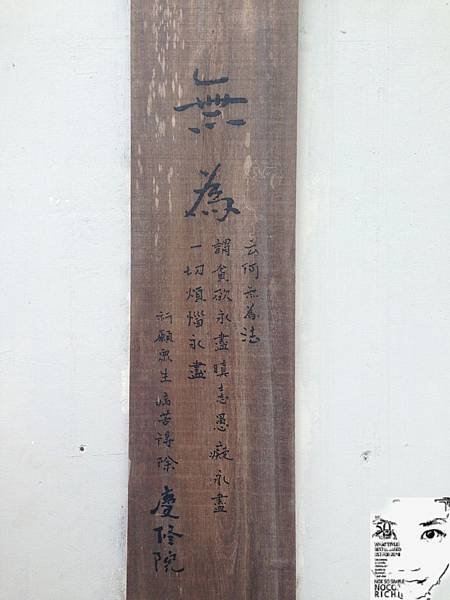 無為
云何无為法
謂貪欲永盡瞋恚愚癡永盡
一切煩惱永盡
祈願眾生病苦得除
慶修院
NOT SO SIMPLE
NOCO
RICH